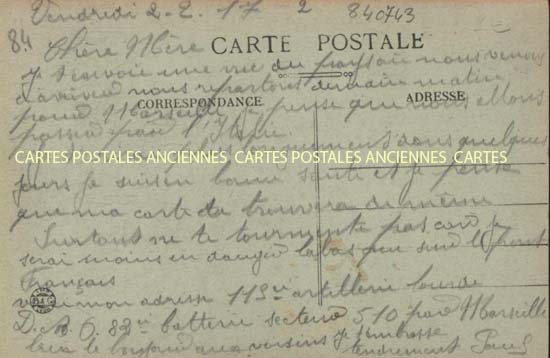 Vendredi 2-2-17 2 840743
84
Chère Mère
CARTE POSTALE
Je t'envoie une vue du pays où nous venons
d'arriver nous repartons demain matin
CORRESPONDANCE
ADRESSE
pour Marseille je pense que nous allons
passer par l'Italie.
dans quelques
CARTES POSTALES ANCIENNES CARTES POSTALES ANCIENNES CARTES
jours je suis en bonne santé et je pense
que ma carte te trouvera de même
Surtout ne te tourmente pas car je
serai moins en danger labas que sur le front
Français
mon adresse 113eme artillerie lourde
82eme batterie secteur 510 par Marseille
le bonjour aux voisins je t'embrasse
tendrement